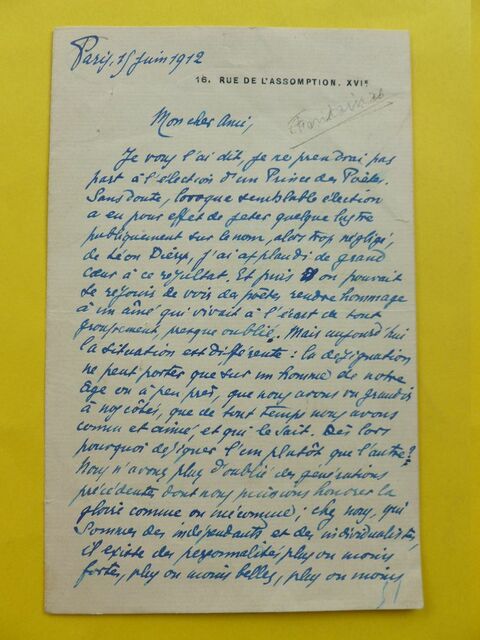 Paris, 15 juin 1912
16, RUE DE L'ASSOMPTION. XVIe
Mon cher Ami,
Je vous l'ai dit, je ne prendrai pas
part à l'élection d'un Prince des Poètes.
Sans doute, lorsque semblable élection
a eu pour effet de jeter quelque lustre
publiquement sur le nom, alors trop négligé,
de Léon Dierx, j'ai applaudi de grand
cœur à ce résultat. Et puis on pouvait
se réjouir de voir des poètes rendre hommage
à un aîné qui vivait à l'écart de tout
groupement, presque oublié. Mais aujourd'hui
la situation est différente : la désignation
ne peut porter que sur un homme de notre
âge ou à peu près, que nous avons vu grandir
à nos côtés, que de tout temps nous avons
connu et aimé, et qui le sait. Dès lors
pourquoi désigner l'un plutôt que l'autre?
Nous n'avons plus d'oublié des générations
précédentes dont nous puissions honorer la
gloire comme on méconnue ; chez nous, qui
sommes des indépendants et des individualistes,
il existe des personnalités plus ou moins
fortes, plus ou moins belles, plus ou moins